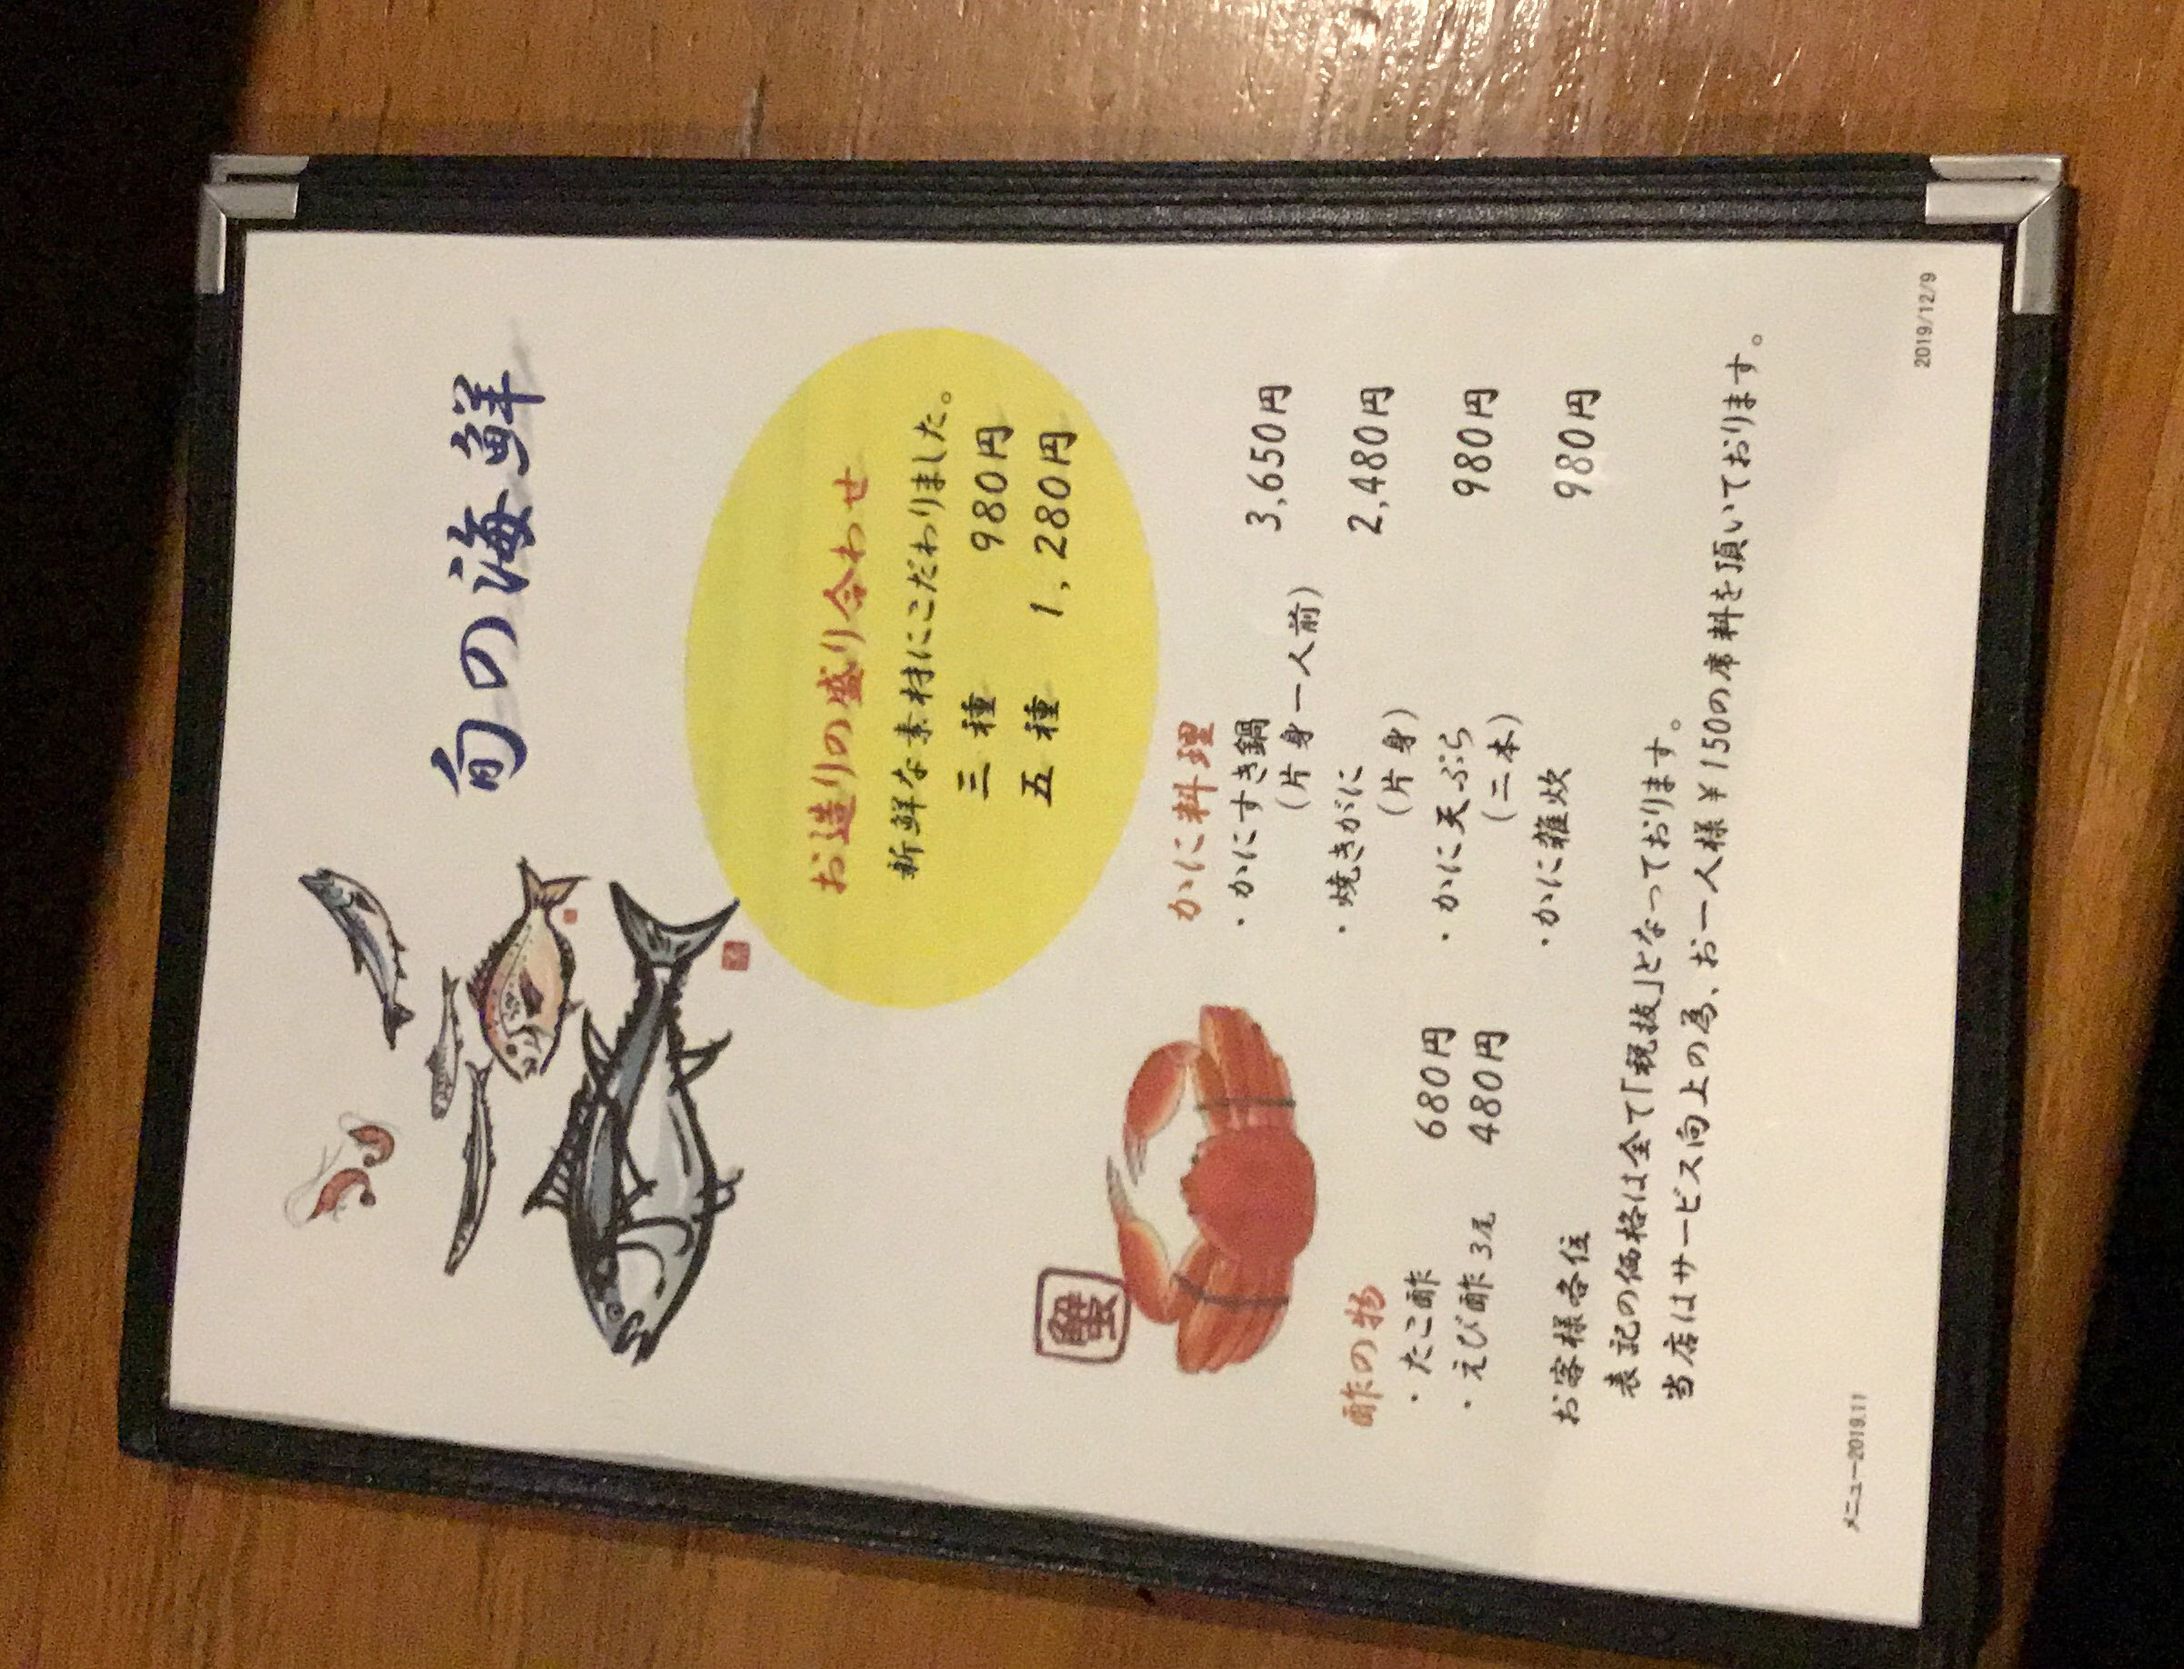 旬の海鮮
お造りの盛り合わせ
新鮮な素材にこだわりました。
三種 980円
五種 1,280円
蟹
かに料理
・かにすき鍋 3,650円
(片身一人前)
・焼きがに 2,480円
(片身)
・かに天ぷら 980円
(二本)
・かに雑炊 980円
酢の物
・たこ酢 680円
・えび酢 3尾 480円
お客様各位
表記の価格は全て「税抜」となっております。
当店はサービス向上の為、お一人様¥150の席料を頂いております。
メニュー2019.11
2019/12/9